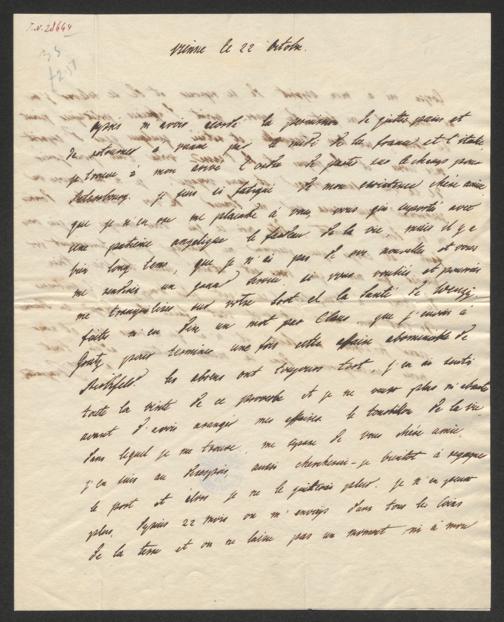 I.N. 28644
Vienne le 22 Octobre.
Après m'avoir accordé la permission de quitter paris et
de retourner à par le midi de la france et l'Italie
je trouve à mon arrivé l'ordre de partir sur le champ pour
Petersbourg. je suis si fatigué de mon existence chère amie
que je n'en ose me plaindre à vous, vous qui suportés avec
une patience angelique le fardeau de la vie, mais il y a
bien long tems, que je n'ai pas de vos nouvelles et vous
me rendriés un grand service si vous vouliés et pouviés
me tranquiliser sur votre sort et la santé de
faites m'en dire un mot par Clam que j'envoie à
pour terminer une fois cette affaire abominable de
les absens ont toujours tort j'en ai senti
toute la verité de ce proverbe et je ne veux plus m'absenter
avant d'avoir arrangé mes affaires. le tourbillon de la vie
dans lequel je me trouve, me separe de vous chère amie
j'en suis au desespoir, aussi chercherai-je bientot à regagner
le port et alors je ne le quitterai plus. je n'en peux
plus, depuis 22 mois on m'envoye dans tous les coins
de la terre et on ne laisse pas un moment ni à mon